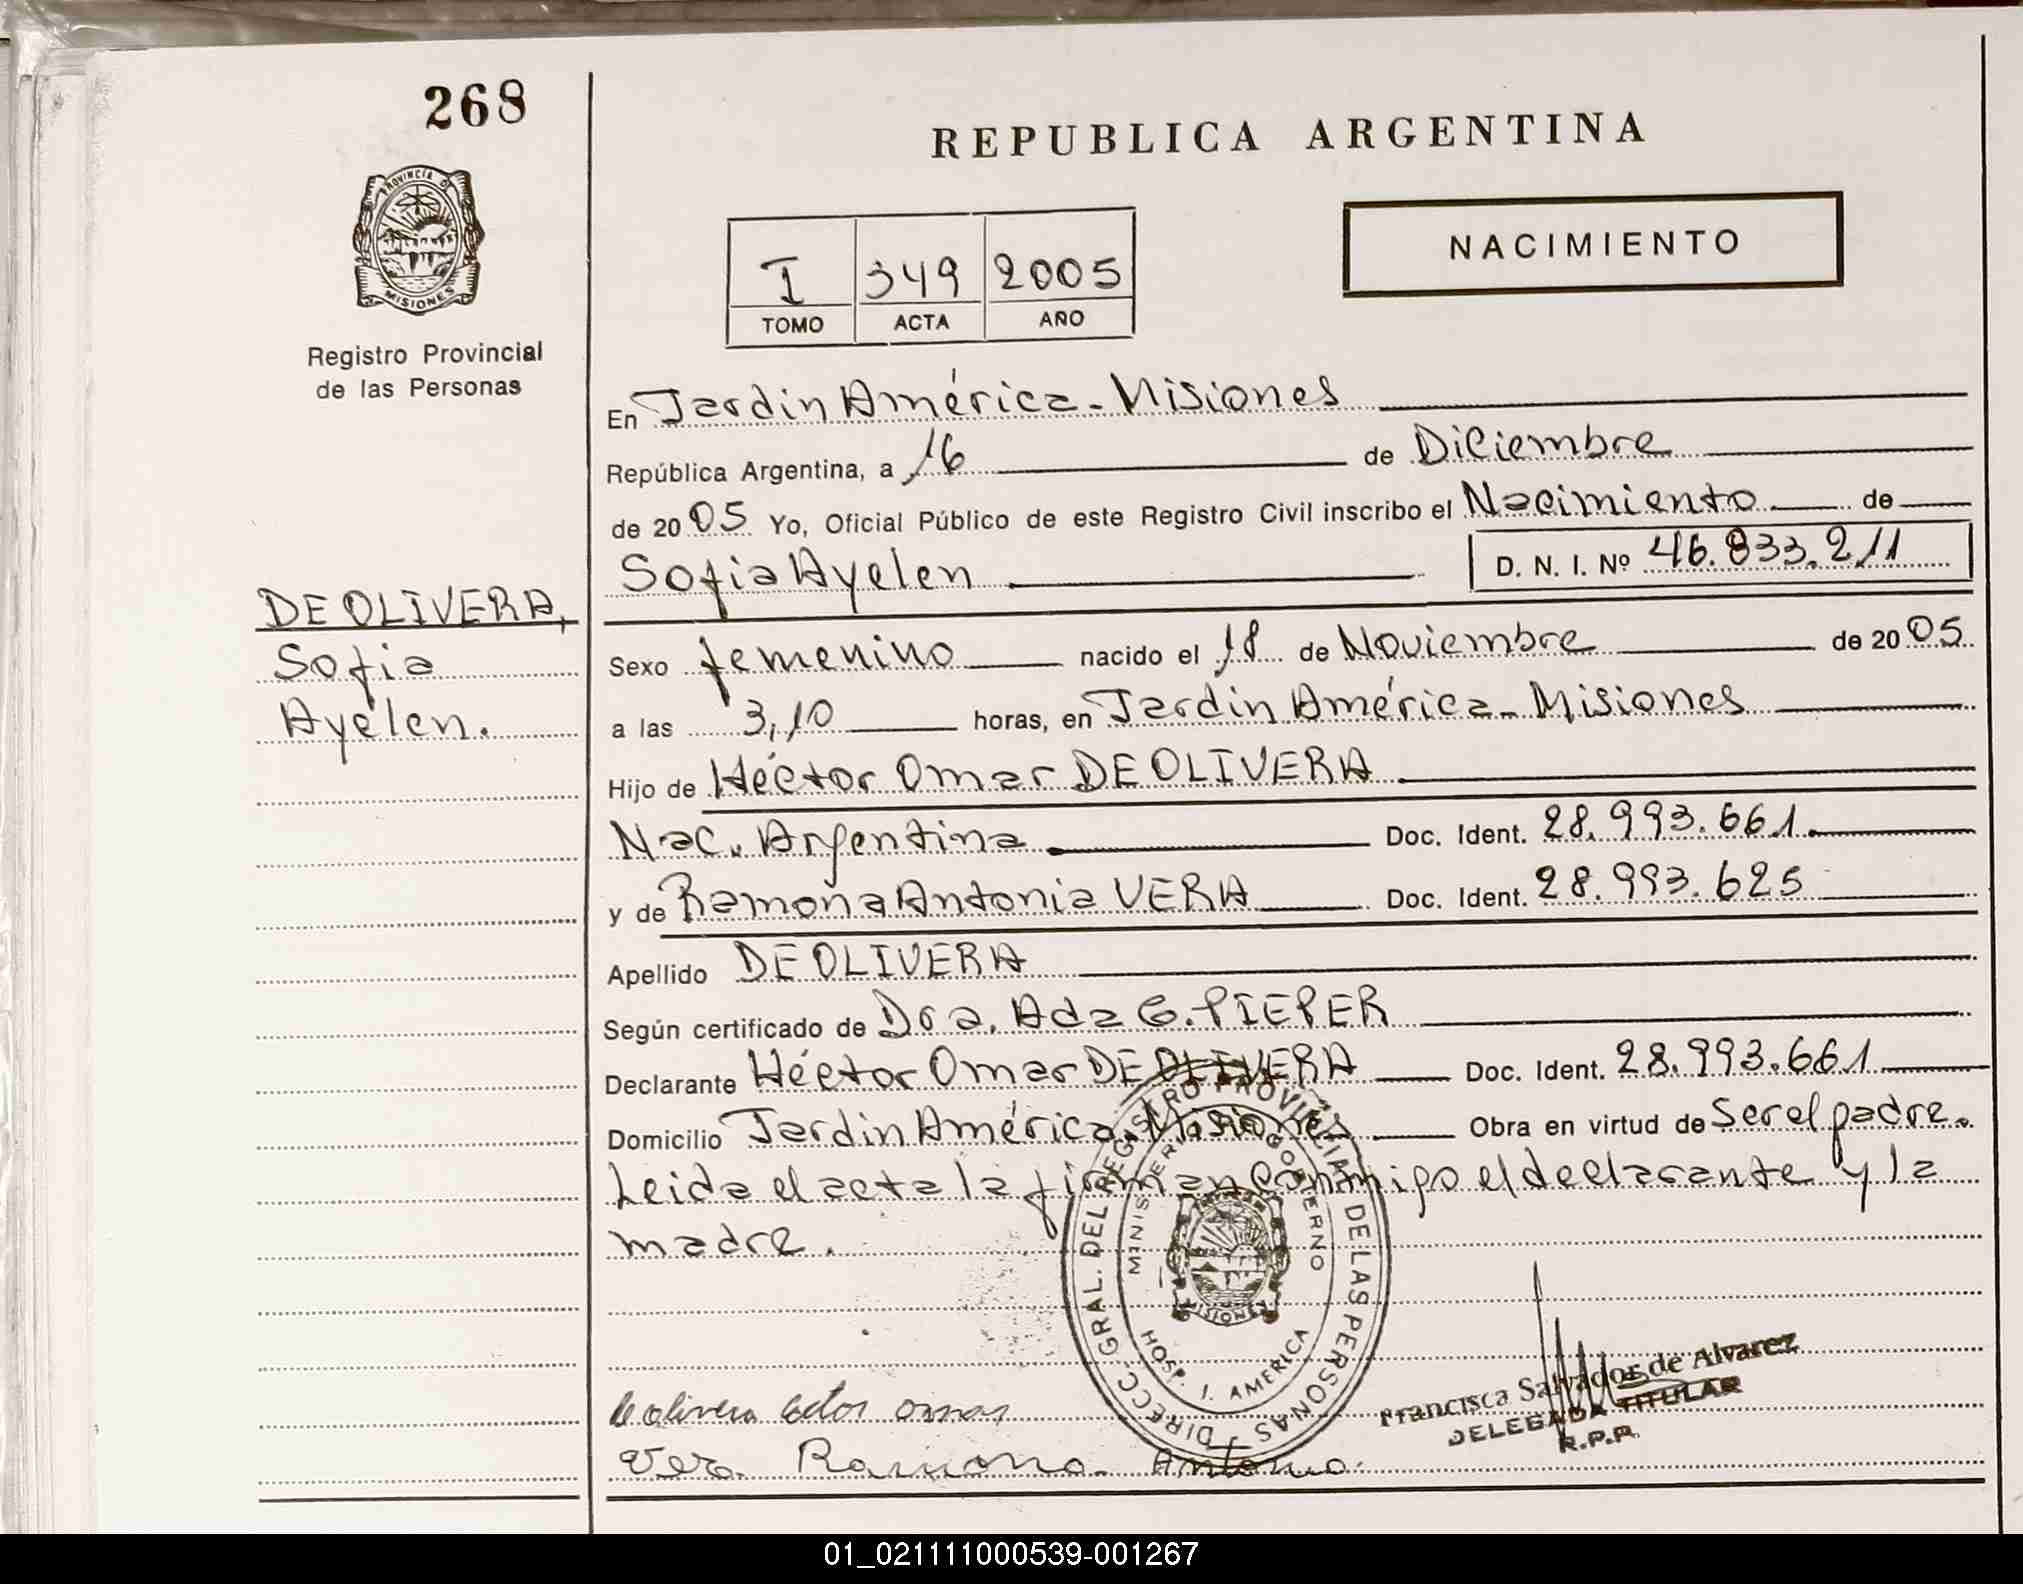 268
REPUBLICA ARGENTINA
PROVINCIA D
MISIONES
Registro Provincial
de las Personas
I 349 2005
TOMO ACTA AÑO
NACIMIENTO
En Jardin América - Misiones
República Argentina, a 16 de Diciembre
de 2005 Yo, Oficial Público de este Registro Civil inscribo el Nacimiento de
Sofia Ayelen D. N. I. Nº 46.833.211
DE OLIVERA,
Sofia
Ayelen.
Sexo femenino nacido el 18 de Noviembre de 2005
a las 3,10 horas, en Jardin América - Misiones
Hijo de Héctor Omar DE OLIVERA
Nac. Argentina Doc. Ident. 28.993.661
y de Ramona Antonia VERA Doc. Ident. 28.993.625
Apellido DE OLIVERA
Según certificado de Dra. Ada G. PIEPER
Declarante Héctor Omar DE OLIVERA Doc. Ident. 28.993.661
Domicilio Jardin América - Misiones Obra en virtud de Ser el padre.
Leida el acta la firman conmigo el declarante y la
madre.
DIRECC. GRAL. DEL REGISTRO PROVINCIAL DE LAS PERSONAS
MINISTERIO GOBIERNO
MISIONES
HOSP. J. AMERICA
Francisca Salvador de Alvarez
DELEGADA TITULAR
R.P.P.
De olivera omar
Vera Ramona Antonia.
01_021111000539-001267